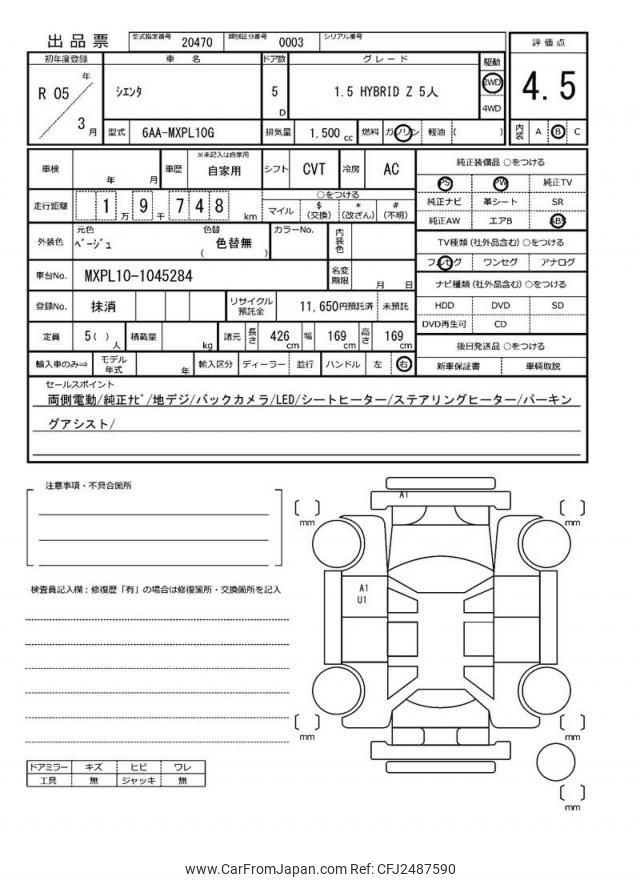 出品票 型式指定番号 20470 類別区分番号 0003 シリアル番号
初年度登録 車名 ドア数 グレード 駆動 評価点
R 05 年 3 月 シエンタ 5 D 1.5 HYBRID Z 5人 2WD 4WD 4.5
型式 6AA-MXPL10G 排気量 1.500 cc 燃料 ガソリン 軽油 ( ) 内装 A B C
車検 年 月 車歴 ※未記入は自家用 自家用 シフト CVT 冷房 AC
走行距離 1 万 9 千 7 4 8 km ○をつける マイル $ (交換) * (改ざん) # (不明)
外装色 元色 ベージュ 色替 色替無 ( ) カラーNo. 内装色
車台No. MXPL10-1045284 名変期限 月 日
登録No. 抹消 リサイクル預託金 11,650円預託済 未預託
定員 5( ) 人 積載量 kg 諸元 長さ 426 cm 幅 169 cm 高さ 169 cm
輸入車のみ⇒ モデル年式 年 輸入区分 ディーラー 並行 ハンドル 左 右
純正装備品 ○をつける
PS PW 純正TV
純正ナビ 革シート SR
純正AW エアB ABS
TV種類(社外品含む)○をつける
フルセグ ワンセグ アナログ
ナビ種類(社外品含む)○をつける
HDD DVD SD
DVD再生可 CD
後日発送品 ○をつける
新車保証書 車輌取説
セールスポイント
両側電動/純正ナビ/地デジ/バックカメラ/LED/シートヒーター/ステアリングヒーター/パーキン
グアシスト/
注意事項・不具合箇所
検査員記入欄:修復歴「有」の場合は修復箇所・交換箇所を記入
ドアミラー キズ ヒビ ワレ
工具 無 ジャッキ 無
A1
[ ] mm
[ ] mm
A1
U1
[ ] mm
[ ] mm
[ ] mm
www.CarFromJapan.com Ref: CFJ2487590